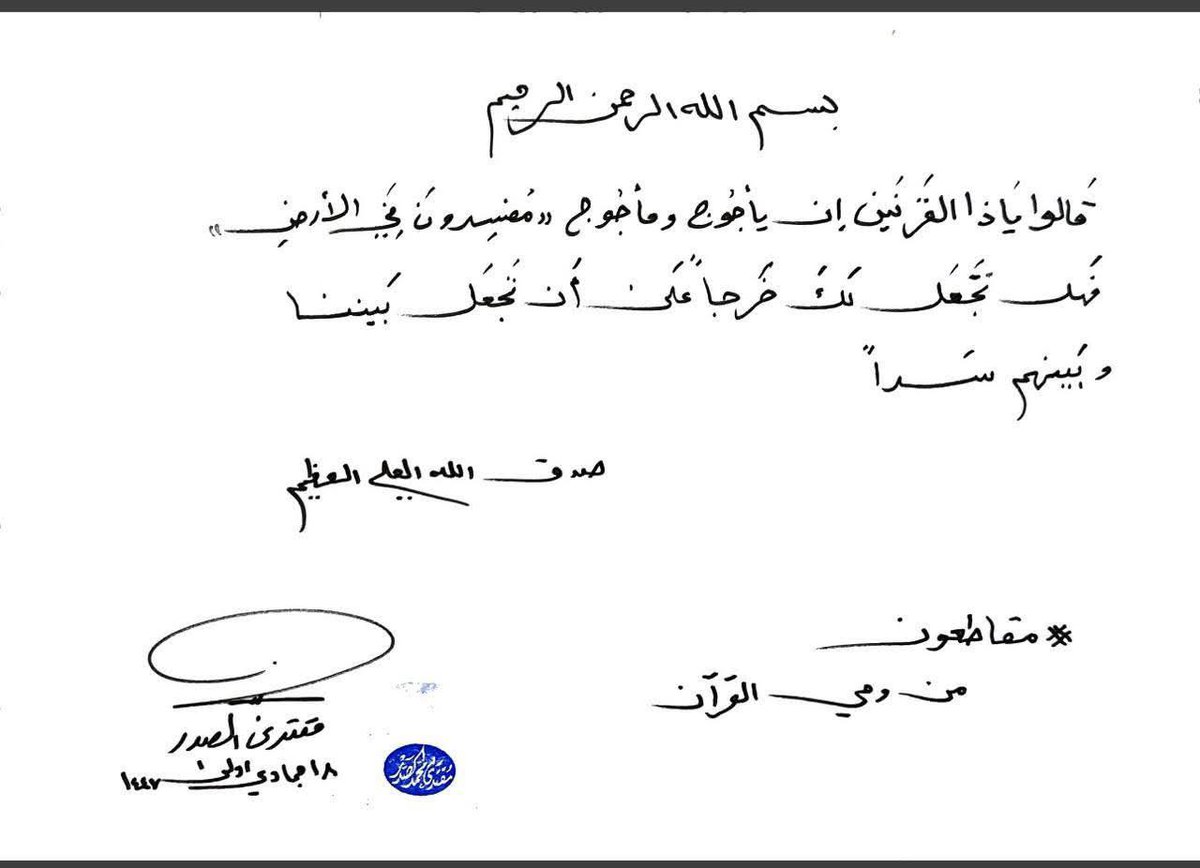 بسم الله الرحمن الرحيم
قَالوا يَاذا القَرنَين إن يأجُوج ومأجُوج «مُفسِدونَ فِي الأرضِ»
فَهل نَجَّعَل لَكَ خَرجاً عَلى أَن نَجعَل بَيننا
وبَينهم سَداً
صدق الله العلي العظيم
* مقاطعون
من وحي القرآن
مقتدى الصدر
١٨ جمادي اولى ١٤٤٧
مقتدى محمد الصدر